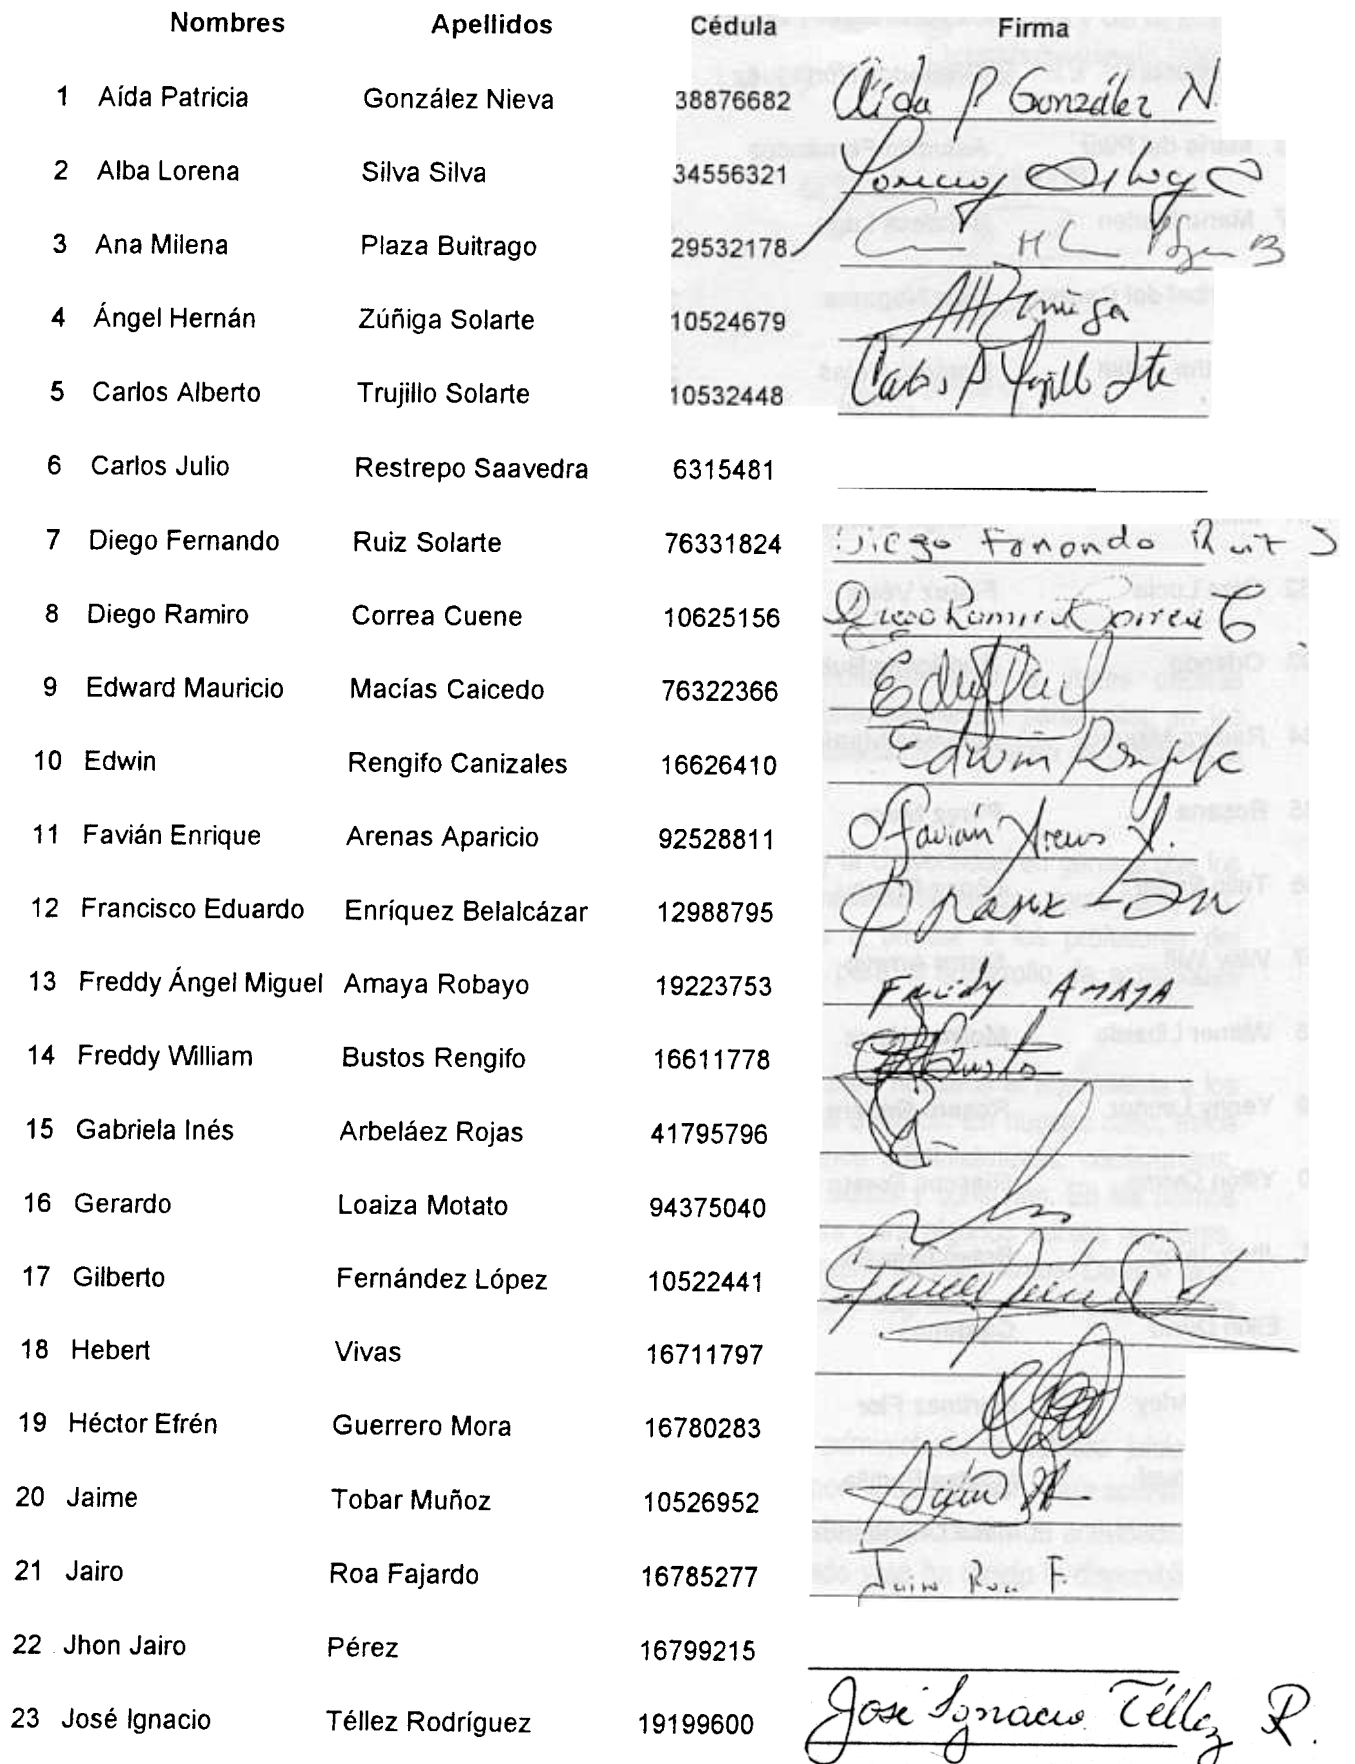 Nombres Apellidos Cédula Firma
1 Aída Patricia González Nieva 38876682 Aída P González N.
2 Alba Lorena Silva Silva 34556321
3 Ana Milena Plaza Buitrago 29532178
4 Ángel Hernán Zúñiga Solarte 10524679 Zúñiga
5 Carlos Alberto Trujillo Solarte 10532448 Carlos A Trujillo Ste
6 Carlos Julio Restrepo Saavedra 6315481
7 Diego Fernando Ruiz Solarte 76331824 Diego Fernando Ruiz S
8 Diego Ramiro Correa Cuene 10625156 Diego Ramiro Correa C
9 Edward Mauricio Macías Caicedo 76322366
10 Edwin Rengifo Canizales 16626410 Edwin Rengifo
11 Favián Enrique Arenas Aparicio 92528811 Favián Arenas A.
12 Francisco Eduardo Enríquez Belalcázar 12988795
13 Freddy Ángel Miguel Amaya Robayo 19223753 Freddy AMAYA
14 Freddy William Bustos Rengifo 16611778
15 Gabriela Inés Arbeláez Rojas 41795796
16 Gerardo Loaiza Motato 94375040
17 Gilberto Fernández López 10522441
18 Hebert Vivas 16711797
19 Héctor Efrén Guerrero Mora 16780283
20 Jaime Tobar Muñoz 10526952
21 Jairo Roa Fajardo 16785277 Jairo Roa F.
22 Jhon Jairo Pérez 16799215
23 José Ignacio Téllez Rodríguez 19199600 José Ignacio Téllez R.